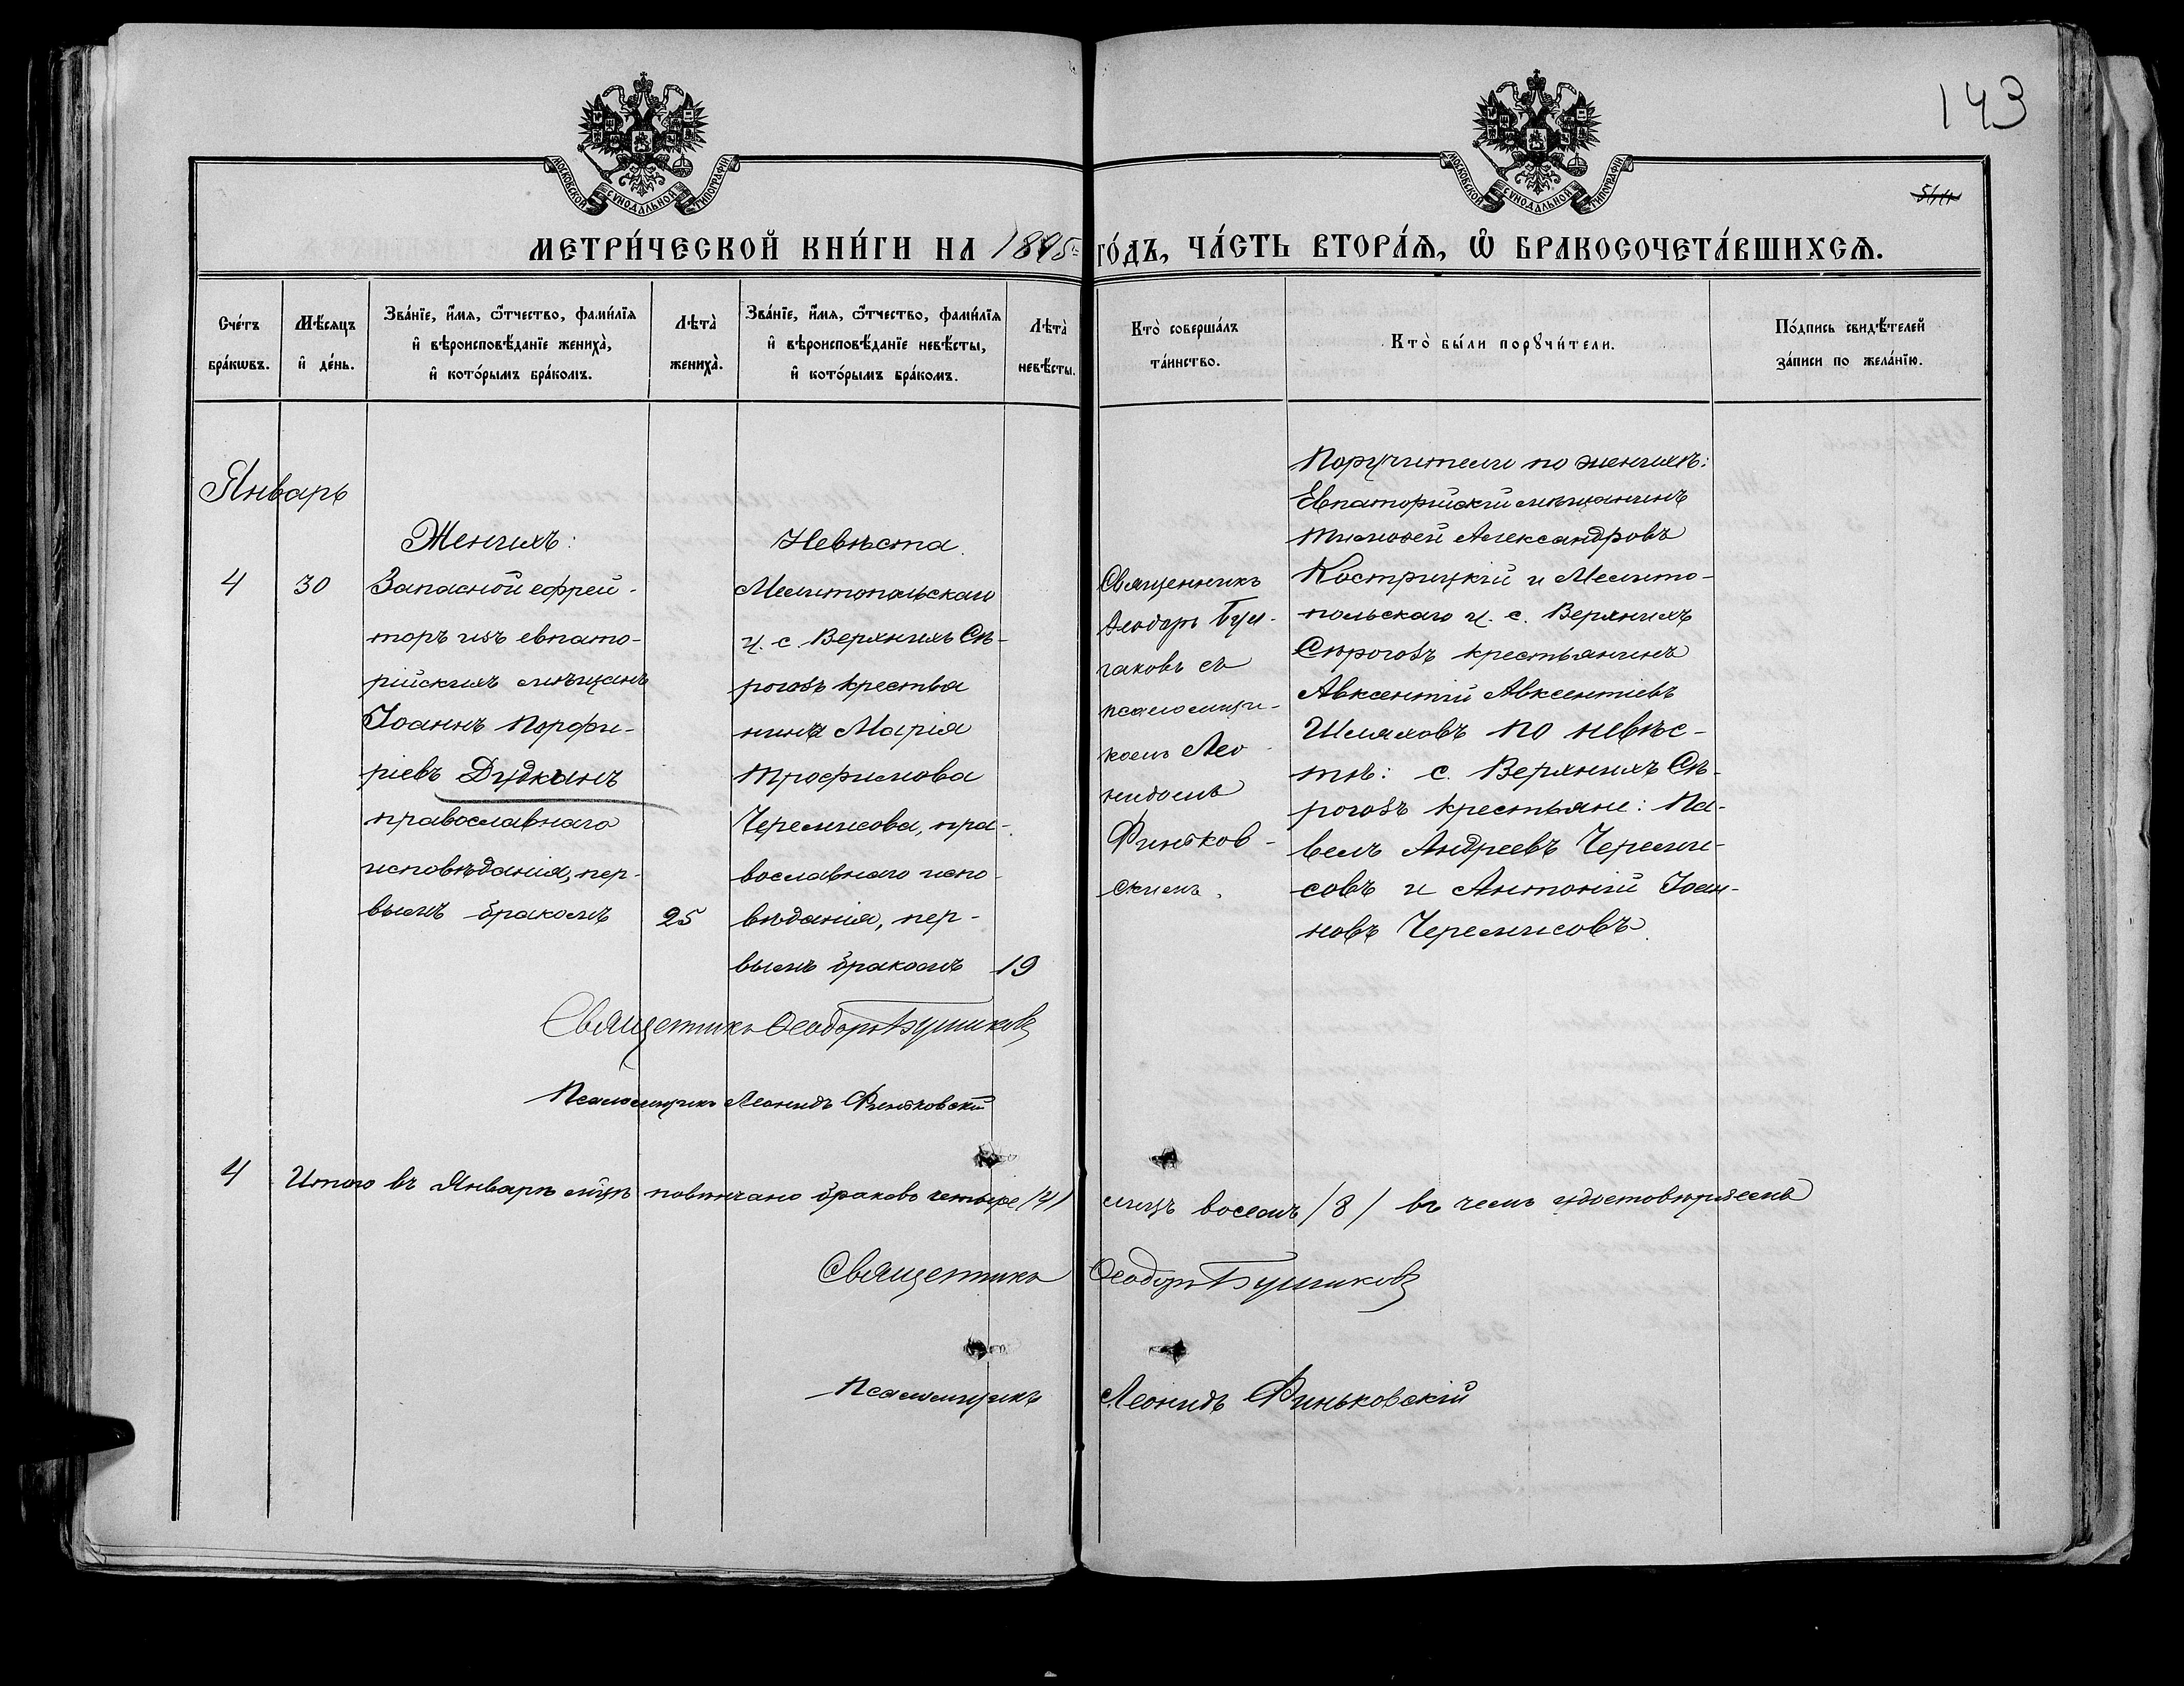 143
МОСКОВСКОЙ СѴНОДАЛЬНОЙ ТИПОГРАФІИ
МОСКОВСКОЙ СѴНОДАЛЬНОЙ ТИПОГРАФІИ
МЕТРИ́ЧЕСКОЙ КНИ́ГИ НА 1895 ГО́ДЪ, ЧА́СТЬ ВТОРА́Я, Ѡ БРАКОСОЧЕТА́ВШИХСЯ.
Сче́тъ бра́кѡвъ.
Мѣ́сяцъ и де́нь.
Зва́нїе, и́мя, ѻ́тчество, фами́лїя и вѣроисповѣ́данїе жениха̀, и кото́рымъ бра́комъ.
Лѣта̀ жениха̀.
Зва́нїе, и́мя, ѻ́тчество, фами́лїя и вѣроисповѣ́данїе невѣ́сты, и кото́рымъ бра́комъ.
Лѣта̀ невѣ́сты.
Кто̀ соверша́лъ та́инство.
Кто̀ бы́ли порꙋчи́тели.
По́дпись свидѣ́телей за́писи по жела́нїю.
Январь
4
30
Женихъ:
Запасной ефрей-
торъ изъ евпато-
рійскихъ мѣщанъ
Іоаннъ Порфи-
ріевъ Дудканъ
православнаго
исповѣданія, пер-
вымъ бракомъ
25
Невѣста.
Мелитопольскаго
у. с. Верхнихъ Сѣ-
рогозъ крестья
нина Марія
Трофимова
Черемисова, пра-
вославнаго испо-
вѣданія, пер-
вымъ бракомъ
19
Священникъ
Ѳеодоръ Бул-
гаковъ съ
псаломщи-
комъ Лео-
нидомъ
Финьков-
скимъ.
Поручители по женихѣ:
Евпаторійскій мѣщанинъ
Тимоѳей Александровъ
Кострицкій и Мелито-
польскаго у. с. Верхнихъ
Сѣрогозъ крестьянинъ
Авксентій Авксентіевъ
Шляховъ по невѣс-
тѣ: с. Верхнихъ Сѣ-
рогозъ крестьяне: Па-
велъ Андреевъ Череми-
совъ и Антоній Іоан-
новъ Черемисовъ.
Священникъ Ѳеодоръ Булгаковъ
Псаломщикъ Леонидъ Финьковскій
4 Итого въ Январѣ мѣсц повѣнчано браковъ четыре /4/ лицъ восемь /8/ въ чемъ удостовѣряемъ
Священникъ Ѳеодоръ Булгаковъ
Псаломщикъ Леонидъ Финьковскій